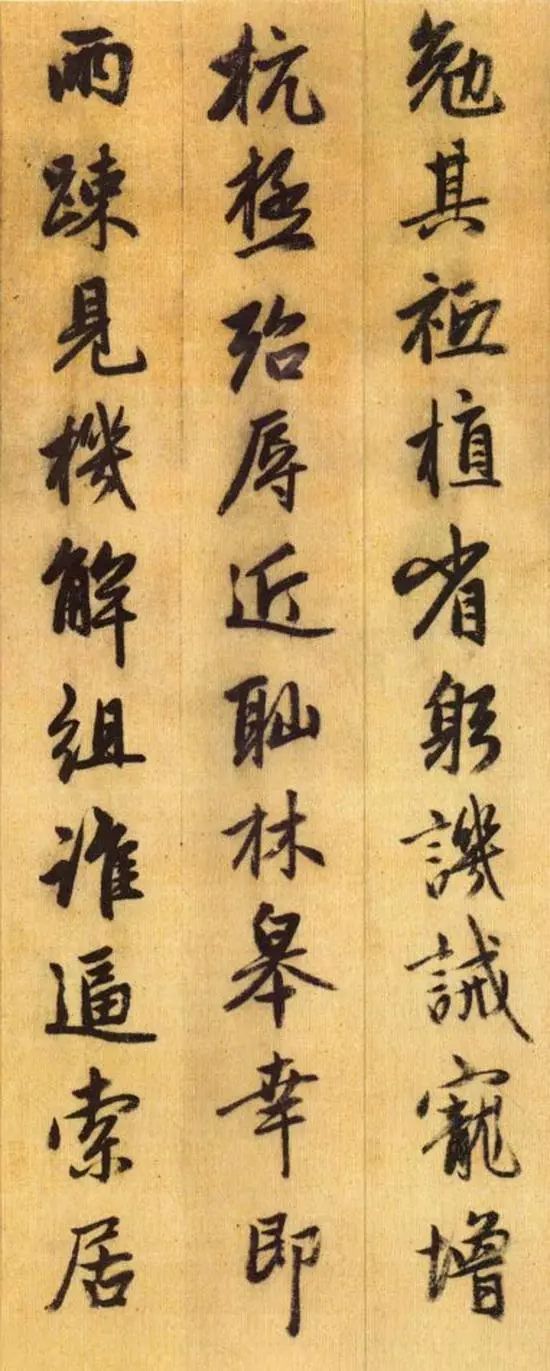 勉其祗植省躬譏誡寵增
杭極殆辱近耻林皋幸即
兩踈見機解組誰逼索居